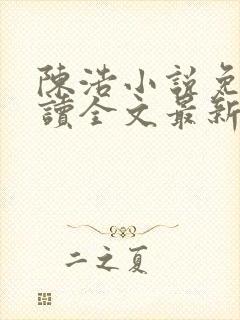 陳浩小說免
讀全文最新
二之夏